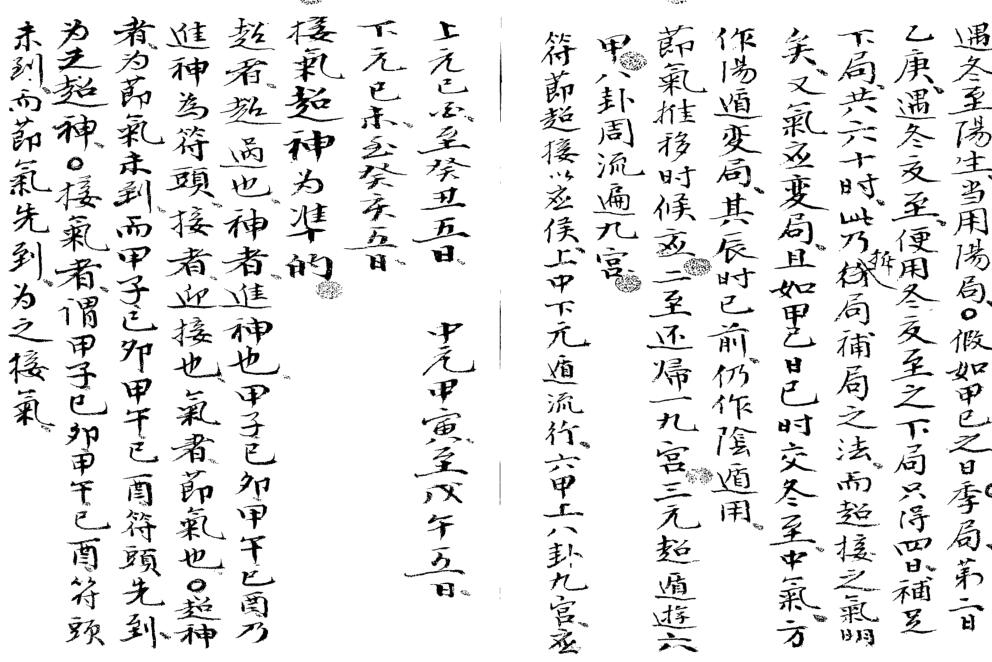 遇冬至陽生、当用陽局。○假如甲己之日季局、第二日
乙庚、遇冬夜至、便用冬夜至之下局、只得四日、補足
下局、共六十時、此乃拆局補局之法、而超接之氣明
矣、又氣应变局、且如甲己日巳时交冬至中氣、方
作陽遁变局、其辰时已前、仍作陰遁用、
節氣推移时候应 二至还帰一九宮 三元超遁遊六
甲 八卦周流遍九宮
符節超接以应候、上中下元遁流行、六甲上八卦九宮应
上元己酉至癸丑五日、　中元甲寅至戊午五日、
下元己未至癸亥五日、
接氣超神为準的
超者、超過也、神者、進神也、甲子己卯甲午己酉乃
進神為符頭、接者迎接也、氣者、節氣也。○超神
者、为節氣未到、而甲子己卯甲午己酉符頭先到、
为之超神。○接氣者、謂甲子己卯甲午己酉符頭
未到、而節氣先到、为之接氣、